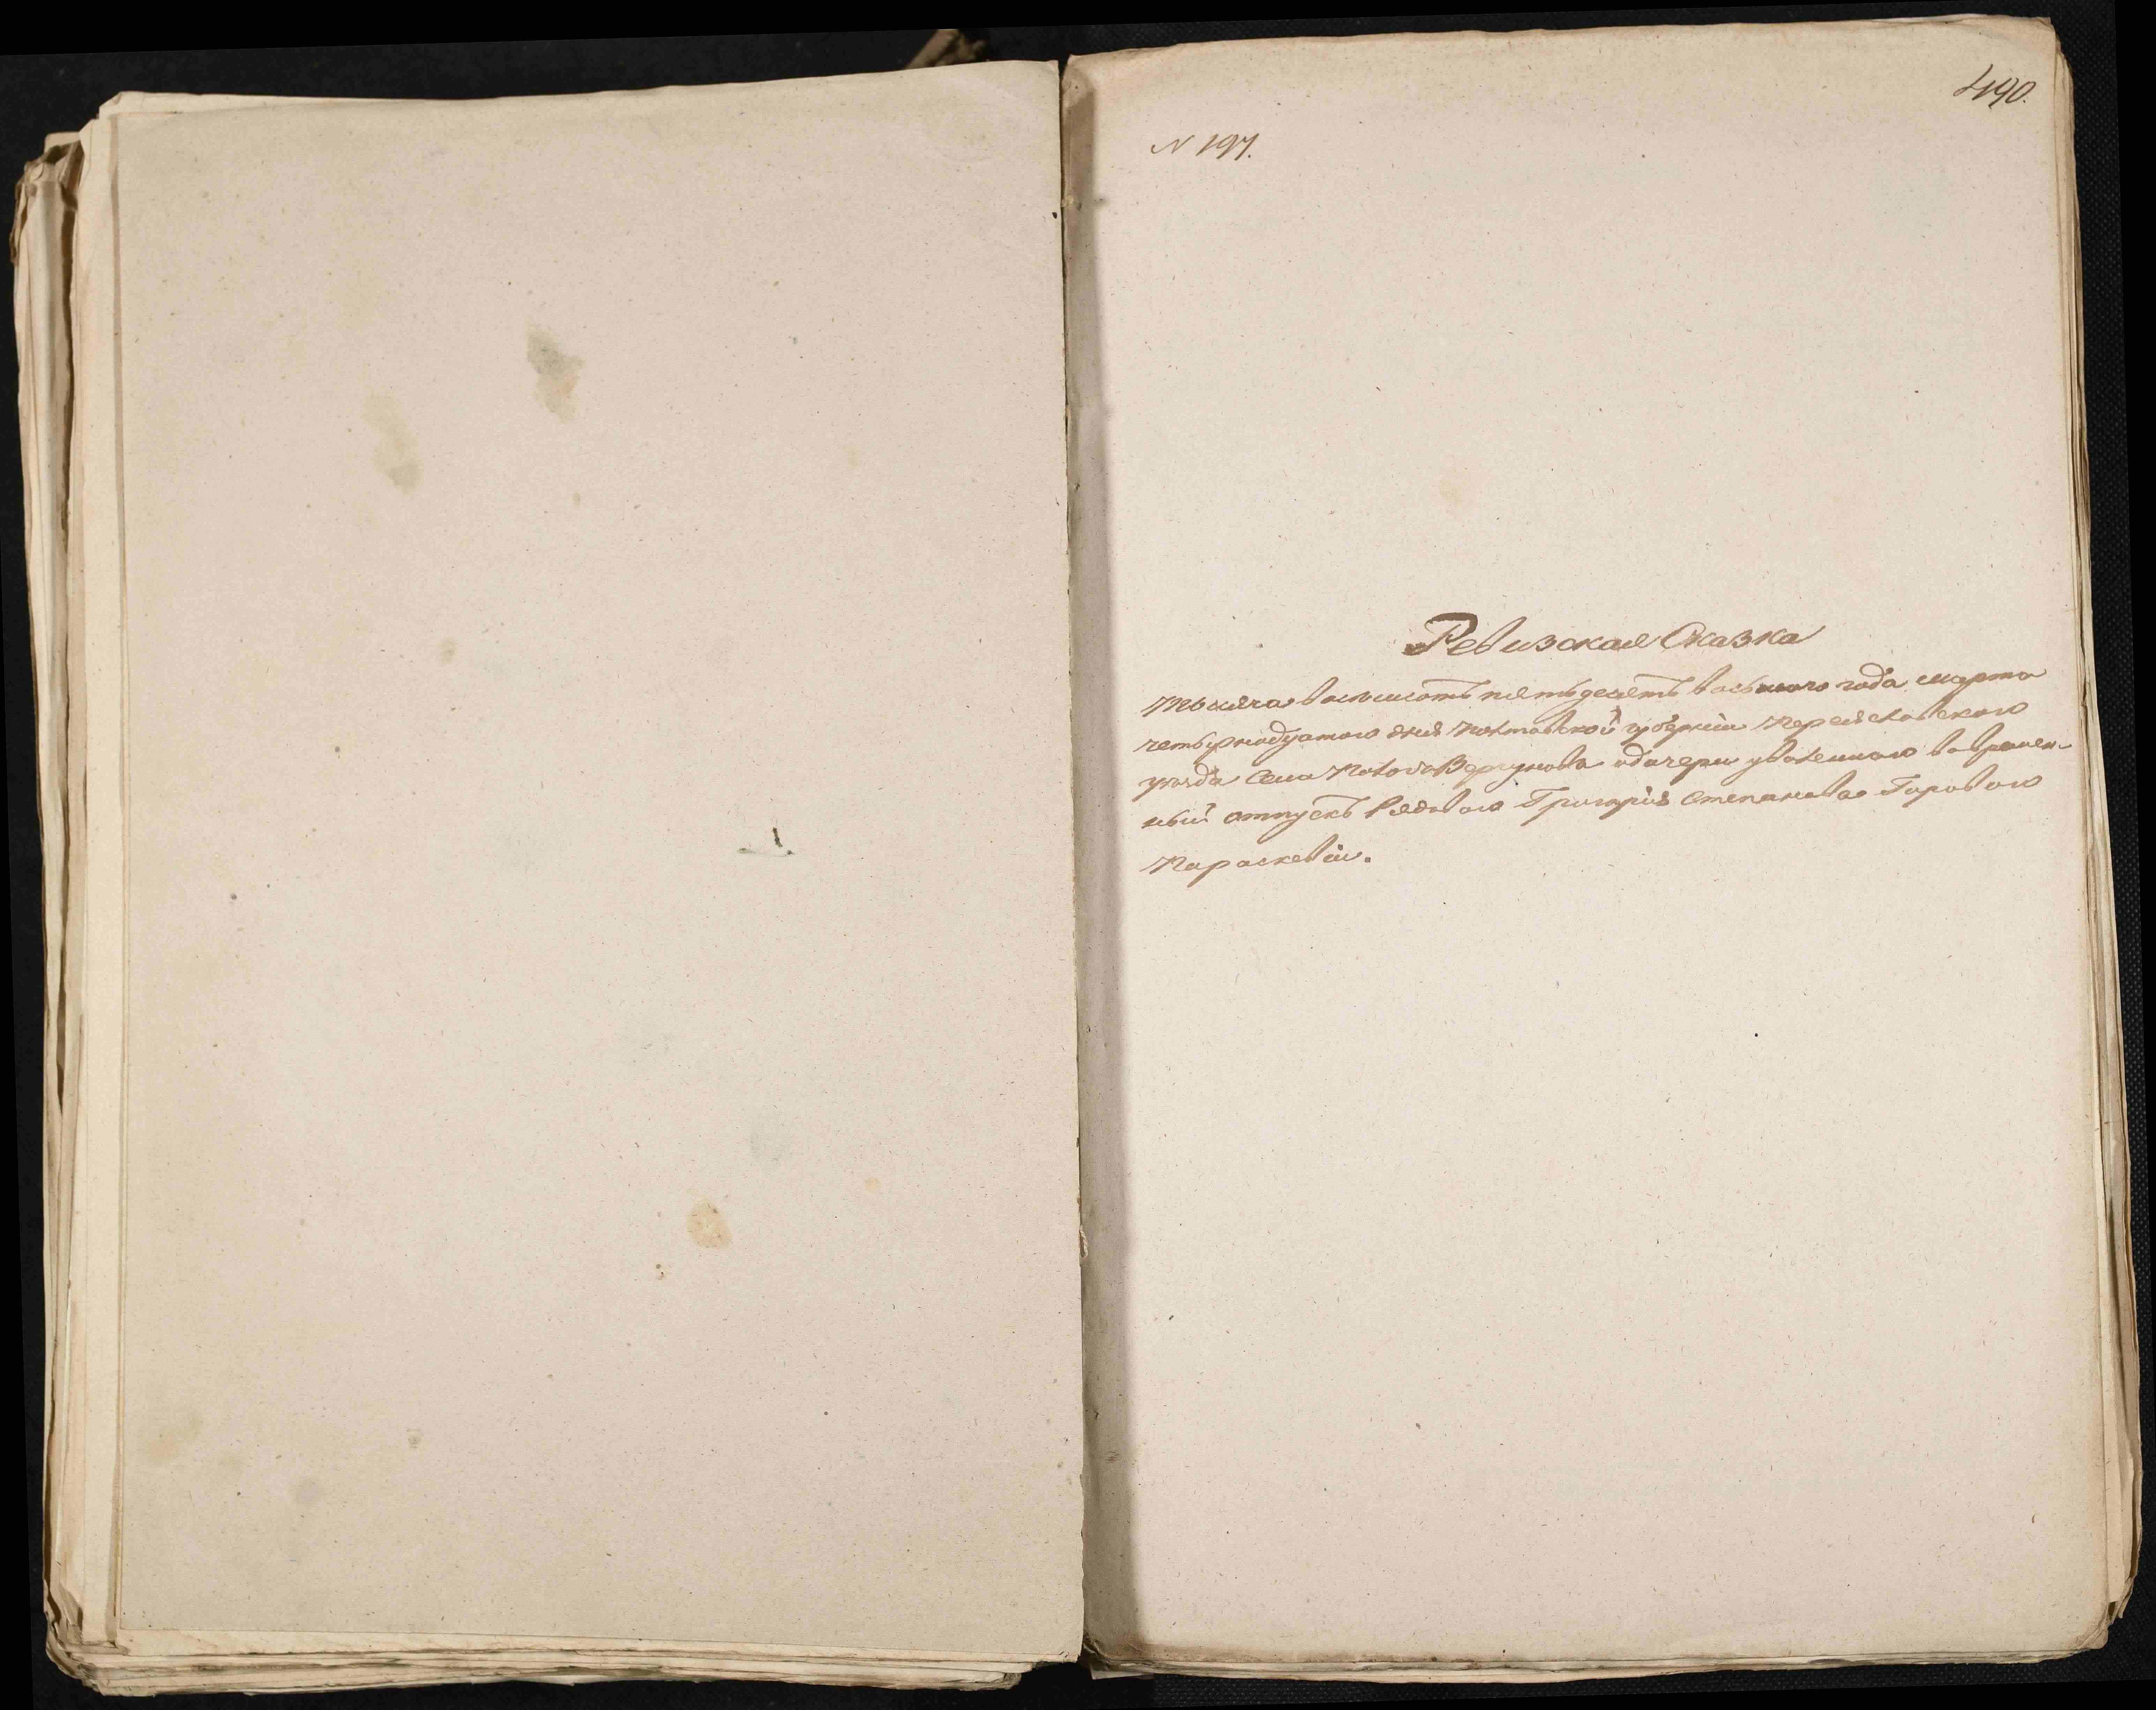 490.
N 197.
Ревизская Сказка
Тысяча восемсотъ пятьдесятъ восьмого года марта
четырнадцатого дня Полтавской губерніи Переяславского
уезда Села Положаъ одочери уволенного вовремен-
ный отпускъ Рядового Григорія Степанова Горового
Параскевіи.